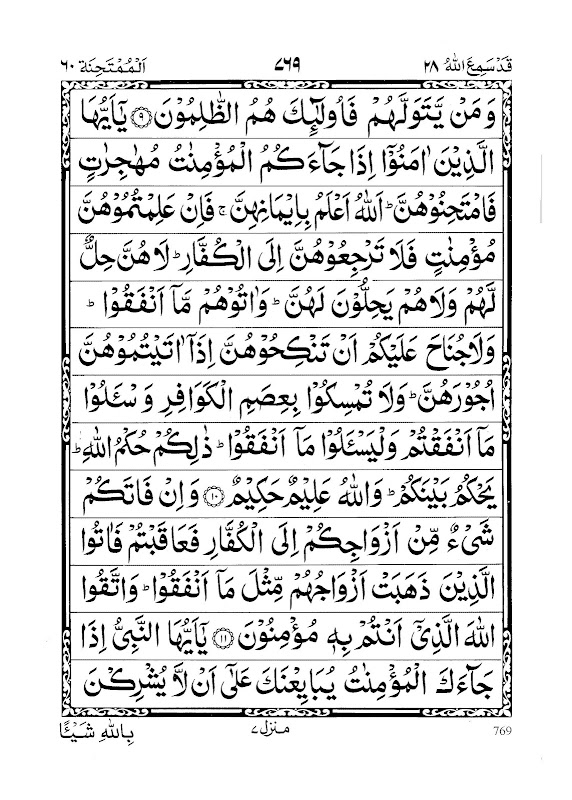 قَدْ سَمِعَ اللّٰهُ ٢٨ ٧٦٩ اَلْمُمْتَحِنَة ٦٠
وَمَنْ يَّتَوَلَّهُمْ فَاُولٰٓئِكَ هُمُ الظّٰلِمُوْنَ ۝٩ يٰٓاَيُّهَا
الَّذِيْنَ اٰمَنُوْٓا اِذَا جَآءَكُمُ الْمُؤْمِنٰتُ مُهٰجِرٰتٍ
فَامْتَحِنُوْهُنَّ ؕ اَللّٰهُ اَعْلَمُ بِاِيْمَانِهِنَّ ۚ فَاِنْ عَلِمْتُمُوْهُنَّ
مُؤْمِنٰتٍ فَلَا تَرْجِعُوْهُنَّ اِلَى الْكُفَّارِ ؕ لَاهُنَّ حِلٌّ
لَّهُمْ وَلَاهُمْ يَحِلُّوْنَ لَهُنَّ ؕ وَاٰتُوْهُمْ مَّآ اَنْفَقُوْا ؕ
وَلَاجُنَاحَ عَلَيْكُمْ اَنْ تَنْكِحُوْهُنَّ اِذَآ اٰتَيْتُمُوْهُنَّ
اُجُوْرَهُنَّ ؕ وَلَا تُمْسِكُوْا بِعِصَمِ الْكَوَافِرِ وَسْـَٔلُوْا
مَآ اَنْفَقْتُمْ وَلْيَسْـَٔلُوْا مَآ اَنْفَقُوْا ؕ ذٰلِكُمْ حُكْمُ اللّٰهِ ؕ
يَحْكُمُ بَيْنَكُمْ ؕ وَاللّٰهُ عَلِيْمٌ حَكِيْمٌ ۝١٠ وَاِنْ فَاتَكُمْ
شَيْءٌ مِّنْ اَزْوَاجِكُمْ اِلَى الْكُفَّارِ فَعَاقَبْتُمْ فَاٰتُوا
الَّذِيْنَ ذَهَبَتْ اَزْوَاجُهُمْ مِّثْلَ مَآ اَنْفَقُوْا ؕ وَاتَّقُوا
اللّٰهَ الَّذِيْٓ اَنْتُمْ بِهٖ مُؤْمِنُوْنَ ۝١١ يٰٓاَيُّهَا النَّبِيُّ اِذَا
جَآءَكَ الْمُؤْمِنٰتُ يُبَايِعْنَكَ عَلٰٓى اَنْ لَّا يُشْرِكْنَ
بِاللّٰهِ شَيْـًٔا
منزل ٧
769